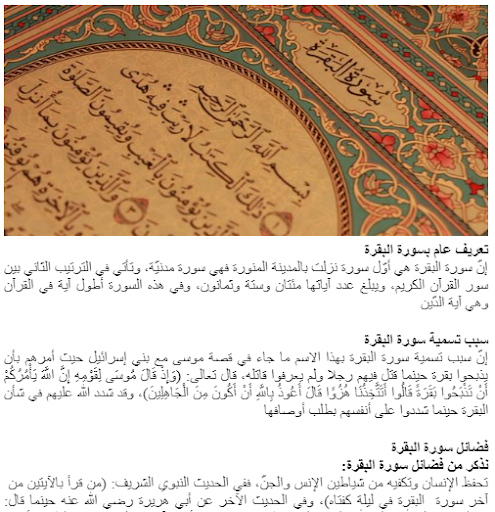 سورة البقرة
بسم الله الرحمن الرحيم
ذلك الكتب لا ريب فيه هدى
يؤمنون بالغيب ويقيمون الصلوة
والذين يؤمنون بما أنزل
وبالآخرة هم يوقنون
تعريف عام بسورة البقرة
إنّ سورة البقرة هي أوّل سورة نزلت بالمدينة المنورة فهي سورة مدنيّة، وتأتي في الترتيب الثّاني بين
سور القرآن الكريم، ويبلغ عدد آياتها مئتان وستة وثمانون، وفي هذه السورة أطول آية في القرآن
وهي آية الدّين
سبب تسمية سورة البقرة
إنّ سبب تسمية سورة البقرة بهذا الاسم ما جاء في قصة موسى مع بني إسرائيل حيث أمرهم بأن
يذبحوا بقرة حينما قتل فيهم رجلا ولم يعرفوا قاتله، قال تعالى: (وَإِذْ قَالَ مُوسَى لِقَوْمِهِ إِنَّ اللَّهَ يَأْمُرُكُمْ
أَنْ تَذْبَحُوا بَقَرَةً قَالُوا أَتَتَّخِذُنَا هُزُوًا قَالَ أَعُوذُ بِاللَّهِ أَنْ أَكُونَ مِنَ الْجَاهِلِينَ)، وقد شدد الله عليهم في شأن
البقرة حينما شددوا على أنفسهم بطلب أوصافها
فضائل سورة البقرة
نذكر من فضائل سورة البقرة:
تحفظ الإنسان وتكفيه من شياطين الإنس والجنّ، ففي الحديث النبوي الشريف: (من قرأ بالآيتين من
آخر سورة البقرة في ليلة كفتاه)، وفي الحديث الآخر عن أبي هريرة رضي الله عنه حينما قال: